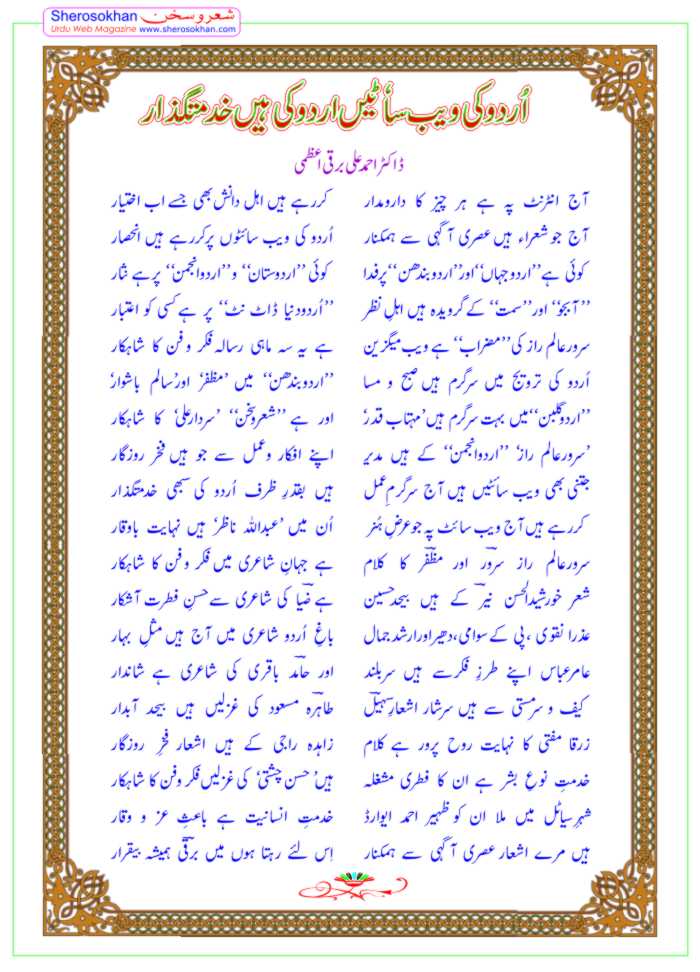 Sherosokhan شعر و سخن
Urdu Web Magazine www.sherosokhan.com
اُردو کی ویب سائٹیں اردو کی ہیں خدمتگذار
ڈاکٹر احمد علی برقی اعظمی
آج انٹرنٹ پہ ہے ہر چیز کا دارومدار کررہے ہیں اہل دانش بھی جسے اب اختیار
آج جو شعراء ہیں عصری آگہی سے ہمکنار اُردو کی ویب سائٹوں پرکررہے ہیں انحصار
کوئی ہے ’’اردو جہاں‘‘ اور ’’اردو بندھن‘‘ پرفدا کوئی ’’اردوستان‘‘ و ’’اردوانجمن‘‘ پرہے نثار
’’آبجو‘‘ اور ’’سمت‘‘ کے گرویدہ ہیں اہلِ نظر ’’اُردودنیا ڈاٹ نٹ‘‘ پر ہے کسی کو اعتبار
سرورعالم راز کی ’’مضراب‘‘ ہے ویب میگزین ہے یہ سہ ماہی رسالہ فکر و فن کا شاہکار
اُردو کی ترویج میں سرگرم ہیں صبح و مسا ’’اردوبندھن‘‘ میں ’مظفر‘ اور ’سالم باشوار‘
’’اردوگلبن‘‘ میں بہت سرگرم ہیں ’مہتاب قدر‘ اور ہے ’’شعروسخن‘‘ ’سردارعلی‘ کا شاہکار
’سرورعالم راز‘ ’’اردوانجمن‘‘ کے ہیں مدیر اپنے افکار وعمل سے جو ہیں فخرِ روزگار
جتنی بھی ویب سائٹیں ہیں آج سرگرمِ عمل ہیں بقدرِ ظرف اُردو کی سبھی خدمتگذار
کررہے ہیں آج ویب سائٹ پہ جو عرضِ ہُنر اُن میں ’عبداللہ ناظر‘ ہیں نہایت باوقار
سرورعالم راز سرور اور مظفر کا کلام ہے جہانِ شاعری میں فکر وفن کا شاہکار
شعر خورشیدالحسن نیر کے ہیں بیحدحسین ہے ضیا کی شاعری سے حسنِ فطرت آشکار
عذرا نقوی ، پی کے سوامی، دھیراورارشد جمال باغِ اُردو شاعری میں آج ہیں مثلِ بہار
عامرعباس اپنے طرزِ فکرسے ہیں سربلند اور حامد باقری کی شاعری ہے شاندار
کیف و سرمستی سے ہیں سرشار اشعارِ سہیل طاہرہ مسعود کی غزلیں ہیں بیحد آبدار
زرقا مفتی کا نہایت روح پرور ہے کلام زاہدہ راجی کے ہیں اشعار فخرِ روزگار
خدمتِ نوعِ بشر ہے ان کا فطری مشغلہ ہیں ’حسن چشتی‘ کی غزلیں فکر وفن کا شاہکار
شہرِ سیاٹل میں ملا ان کو ظہیر احمد ایوارڈ خدمتِ انسانیت ہے باعثِ عز و وقار
ہیں مرے اشعار عصری آگہی سے ہمکنار اِس لئے رہتا ہوں میں برقی ہمیشہ بیقرار